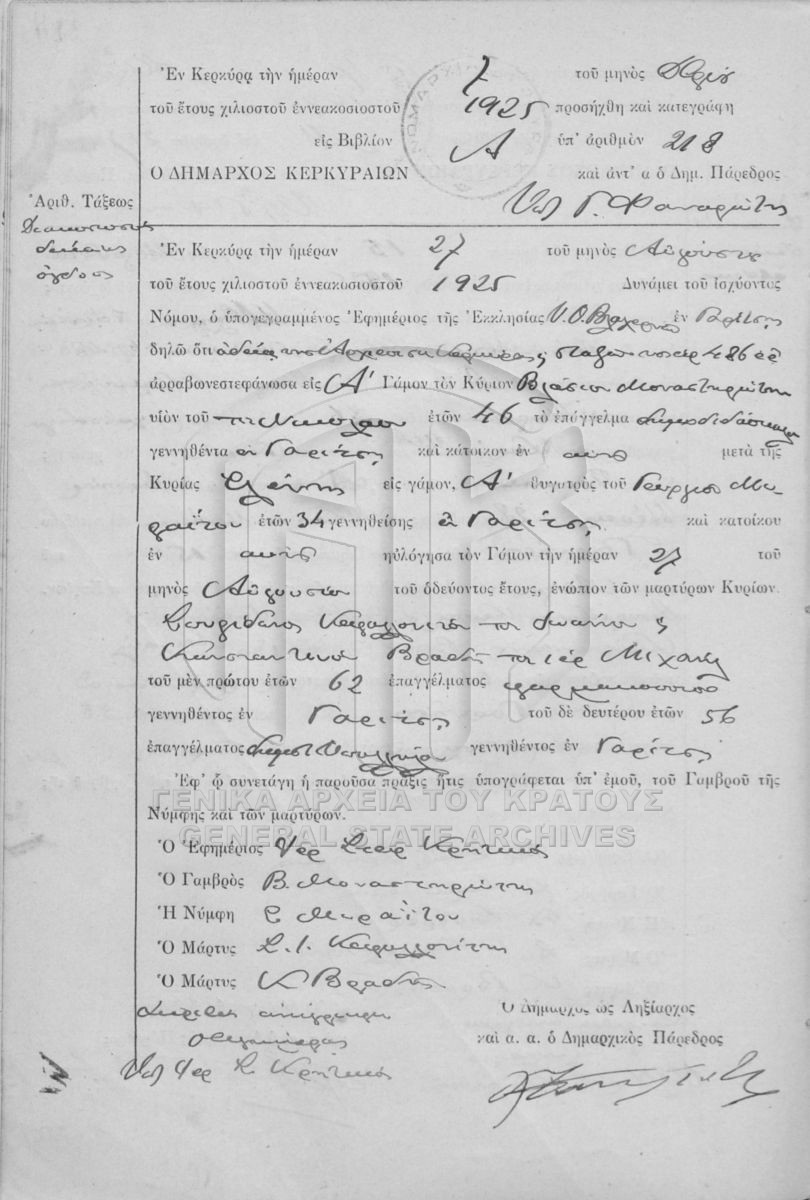 Ἐν Κερκύρᾳ τὴν ἡμέραν 7 τοῦ μηνὸς
τοῦ ἔτους χιλιοστοῦ ἐννεακοσιοστοῦ 1925 προσήχθη καὶ κατεγράφη
εἰς Βιβλίον Α ὑπ' ἀριθμὸν 218
Ὁ ΔΗΜΑΡΧΟΣ ΚΕΡΚΥΡΑΙΩΝ καὶ ἀντ' α ὁ Δημ. Πάρεδρος
Ἀριθ. Τάξεως
Διακοσιοστὸς
δέκατος
ὄγδοος
Ἐν Κερκύρᾳ τὴν ἡμέραν 27 τοῦ μηνὸς Αὐγούστου
τοῦ ἔτους χιλιοστοῦ ἐννεακοσιοστοῦ 1925 Δυνάμει τοῦ ἰσχύοντος
Νόμου, ὁ ὑπογεγραμμένος Ἐφημέριος τῆς Ἐκκλησίας Υ. Θ. ἐν Γαρίτσῃ
δηλῶ ὅτι 486
ἀρραβωνεστεφάνωσα εἰς Α' Γάμον τὸν Κύριον Βλάσιον Μοναστηριώτην
υἱὸν τοῦ Νικολάου ἐτῶν 46 τὸ ἐπάγγελμα δημοδιδάσκαλον
γεννηθέντα ἐν Γαρίτσῃ καὶ κάτοικον ἐν μετὰ τῆς
Κυρίας Ἑλένης εἰς γάμον, Α' θυγατρὸς τοῦ Γεωργίου Μω
ραΐτου ἐτῶν 34 γεννηθείσης ἐν Γαρίτσῃ καὶ κατοίκου
ἐν ηὐλόγησα τὸν Γάμον τὴν ἡμέραν 27 τοῦ
μηνὸς Αὐγούστου τοῦ ὁδεύοντος ἔτους, ἐνώπιον τῶν μαρτύρων Κυρίων.
Σπυρίδωνος Κεφαλλονίτου τοῦ Ἰωάννου
Κωνσταντίνου Βραδῆ Μιχαὴλ
τοῦ μὲν πρώτου ἐτῶν 62 ἐπαγγέλματος φαρμακοποιοῦ
γεννηθέντος ἐν Γαρίτσῃ τοῦ δὲ δευτέρου ἐτῶν 56
ἐπαγγέλματος γεννηθέντος ἐν Γαρίτσῃ
Ἐφ' ᾧ συνετάγη ἡ παροῦσα πρᾶξις ἥτις ὑπογράφεται ὑπ' ἐμοῦ, τοῦ Γαμβροῦ τῆς
ΓΕΝΙΚΑ ΑΡΧΕΙΑ ΤΟΥ ΚΡΑΤΟΥΣ
Νύμφης καὶ τῶν μαρτύρων.
GENERAL STATE ARCHIVES
Ὁ Ἐφημέριος Ἱερ Κρητικὸς
Ὁ Γαμβρὸς Β. Μοναστηριώτης
Ἡ Νύμφη Ε Μωραΐτου
Ὁ Μάρτυς Σ. Ι. Κεφαλλονίτης
Ὁ Μάρτυς Κ Βραδῆς
Ὁ Δήμαρχος ὡς Ληξίαρχος
καὶ α. α. ὁ Δημαρχικὸς Πάρεδρος
Ἱερ Σ. Κρητικὸς